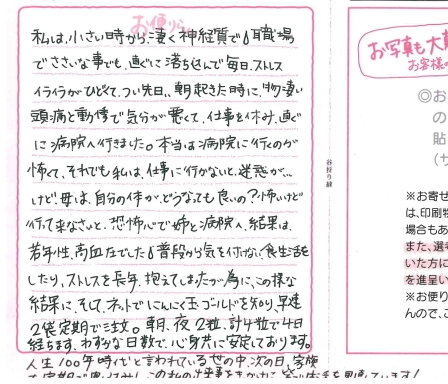 お便り
私は、小さい時から、凄く神経質で、職場
でささいな事でも、直ぐに落ち込んで毎日、ストレス
イライラがひどくて、つい先日、朝起きた時に、物凄い
頭痛と動悸で気分が悪くて、仕事を休み、直ぐ
に病院へ行きました。本当は病院に行くのが
怖くて、それでも私は、仕事に行かないと、迷惑が…
けど母は、自分の体が、どうなっても良いの?怖いけど
行って来なさいと、恐怖心で姉と病院へ、結果は、
若年性、高血圧でした。普段から気を付けない食生活を
したり、ストレスを長年、抱えてしまったが為に、この様な
結果に、そして、ネットでにんにく玉ゴールドを知り、早速
2袋定期で注文。朝、夜2粒、計4粒で4日
経ちます、わずかな日数で、心身共に安定しております。
人生100年時代と言われている世の中、次の日、家族
谷折り線
お写真も大
お客様
◎お
の
貼
(サ
※お寄せ
は、印刷物
場合もあ
また、選
いた方に
を進呈い
※お便り
んので、こ